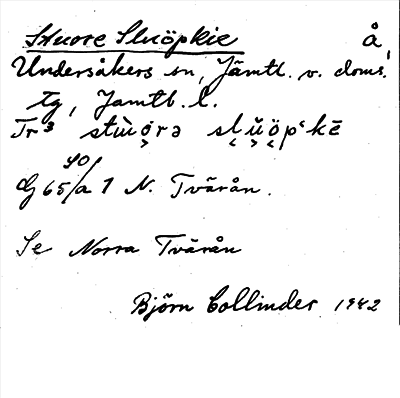 Stuore Sluöpkie Å
Undersåkers sn, Jämtl. v. doms.
tg, Jämtl. l.
Tr³ stùo̯rə sl̥ŭ̯ö̯pʻkē
G 65/a 1 N. Tvärån.
Se Norra Tvärån
Björn Collinder 1942